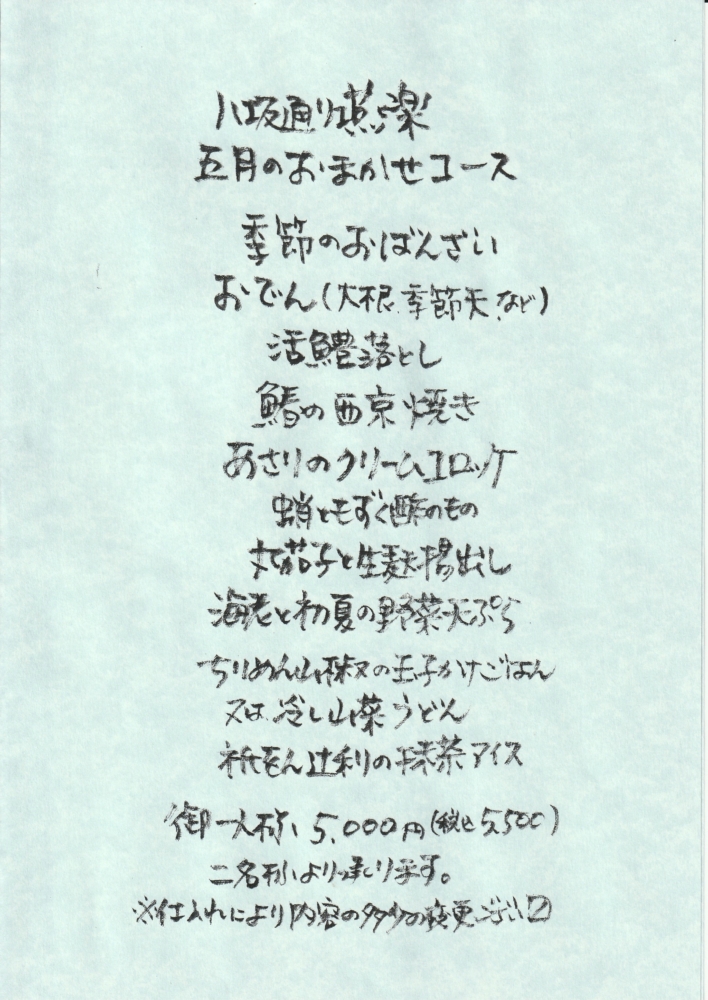 八坂通り燕楽
五月のおまかせコース
季節のおばんざい
おでん(大根、季節天、など)
活鱧落とし
鰆の西京焼き
あさりのクリームコロッケ
蛸ともずく酢のもの
丸茄子と生麩揚出し
海老と初夏の野菜天ぷら
ちりめん山椒の玉子かけごはん
又は冷し山菜うどん
祇をん辻利の抹茶アイス
御一人様、5,000円(税込5,500)
二名様より承ります。
※仕入れにより内容の多少の変更ござい〼